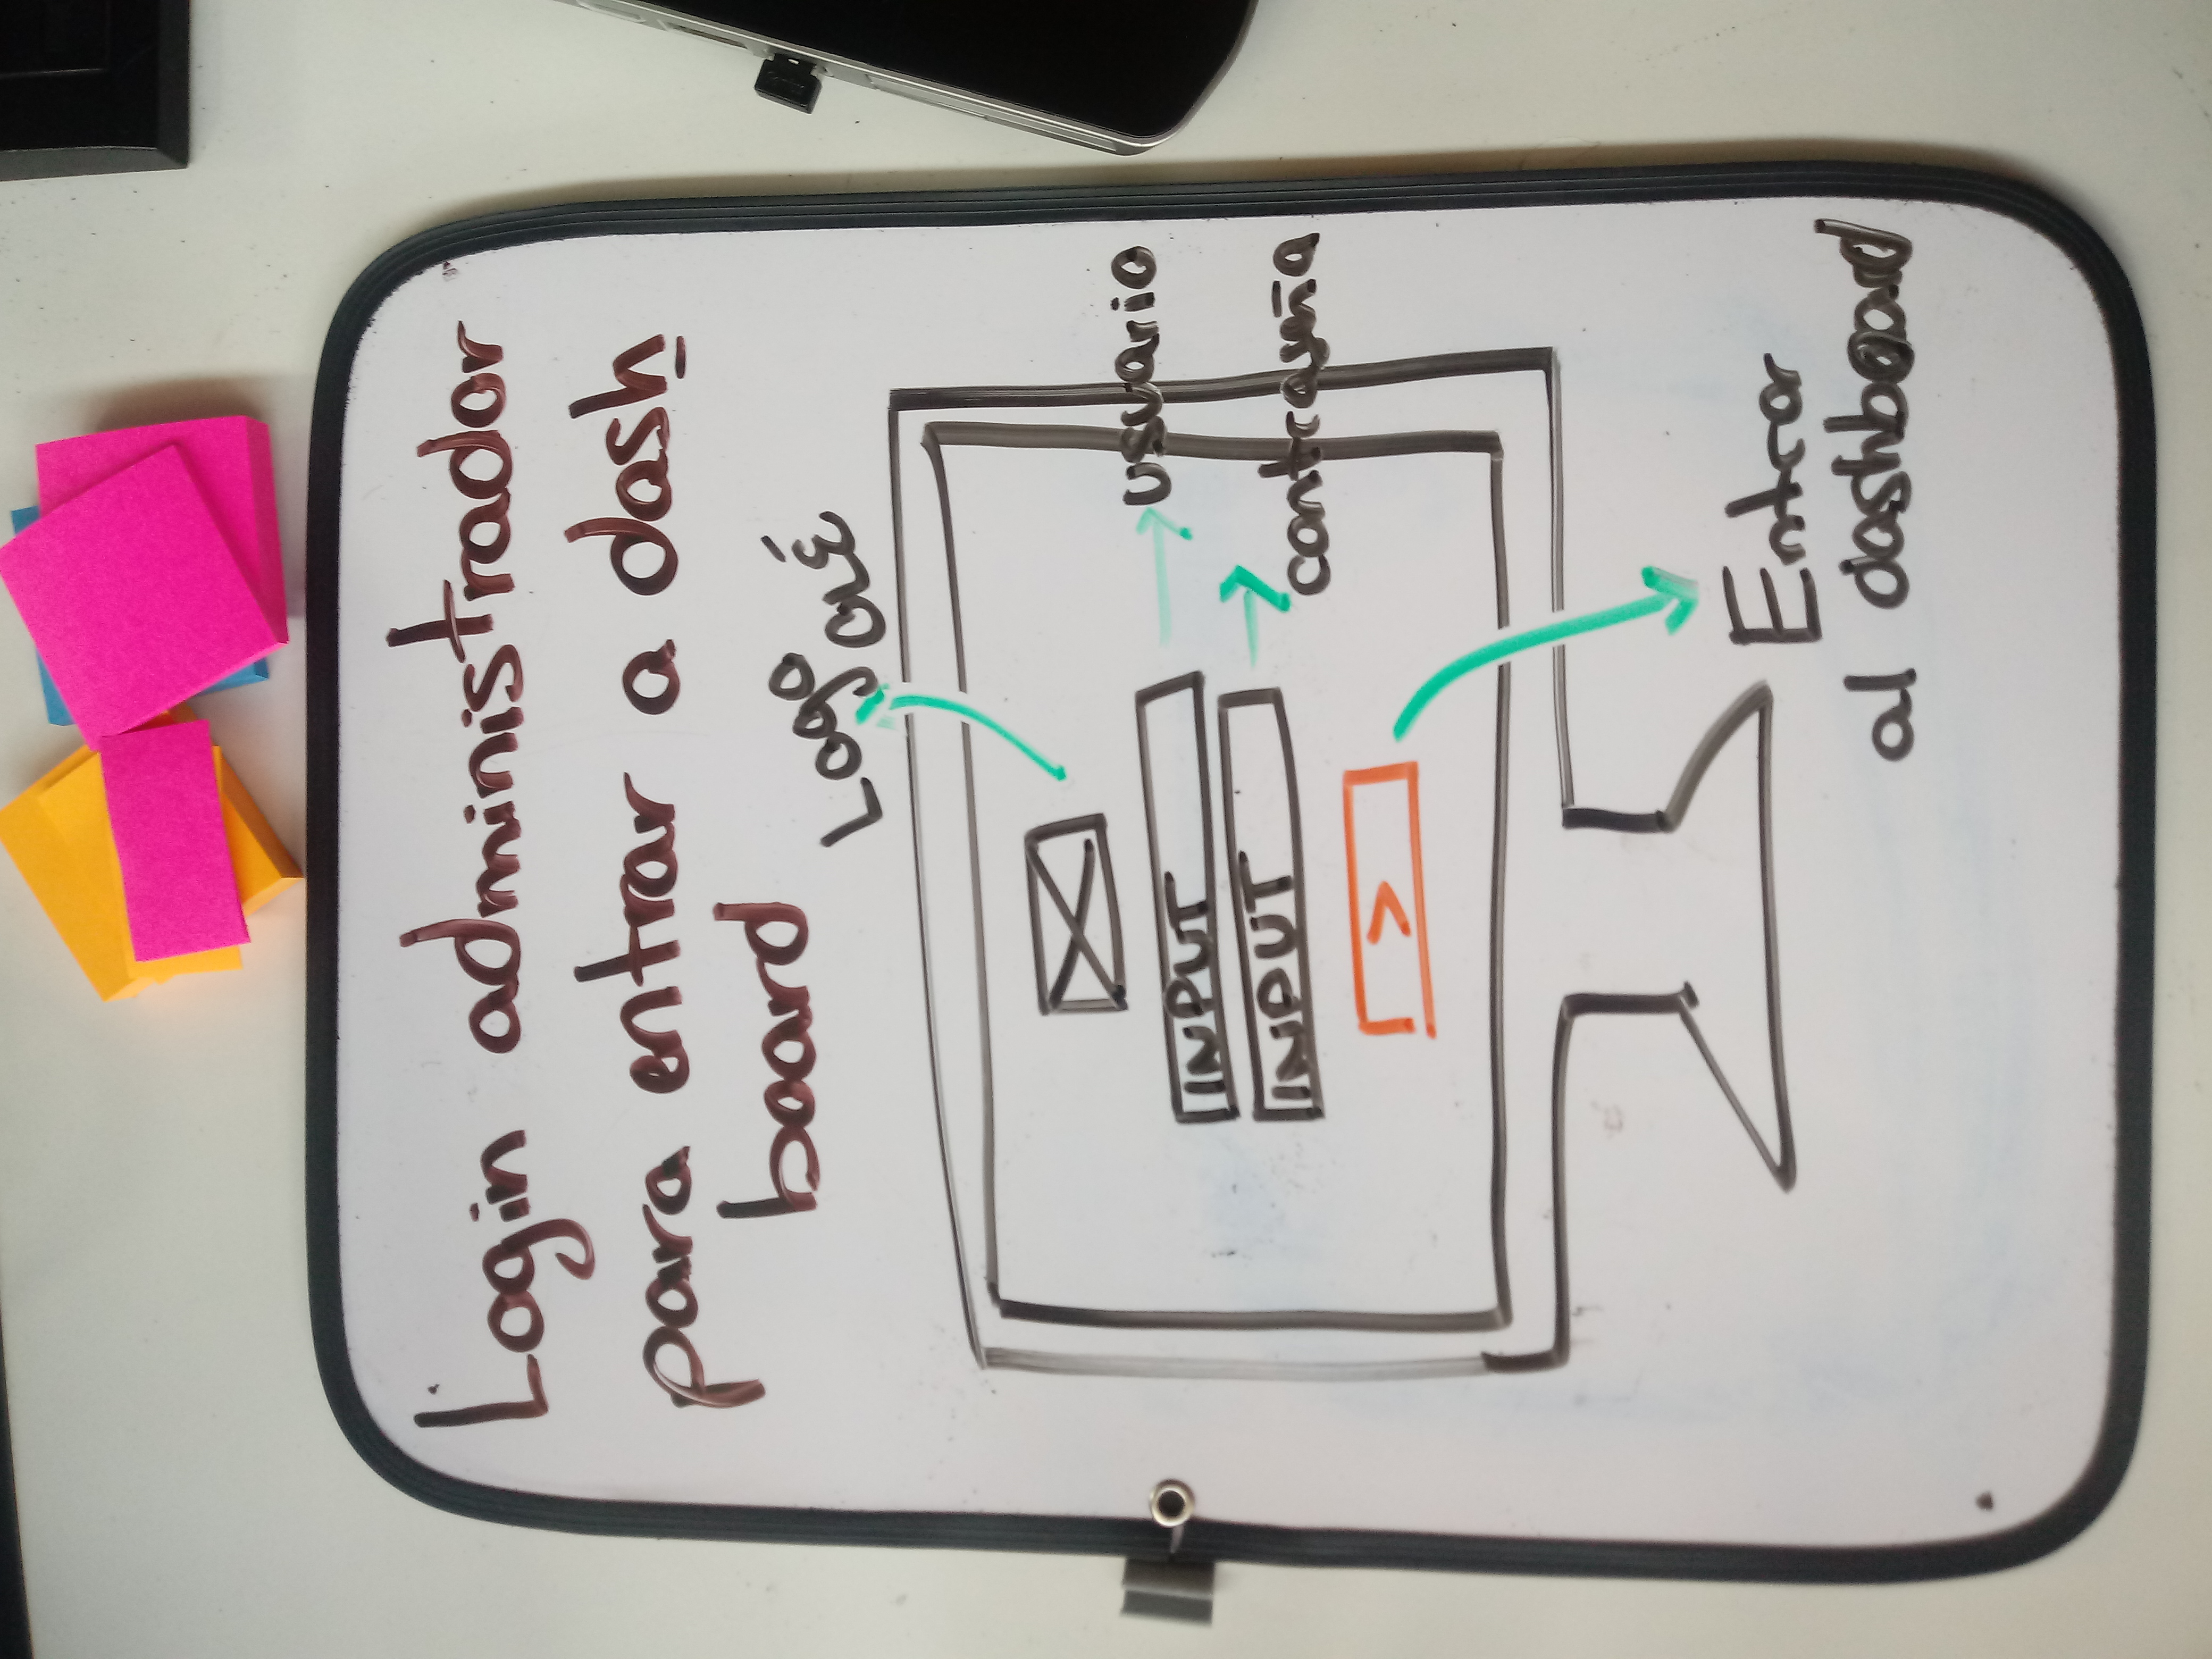 Login administrador
para entrar a dash
board
Logo OLÉ
INPUT
usuario
INPUT
contraseña
>
Entrar
al dashboard